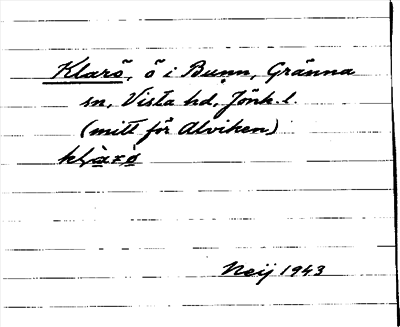 Klarö, ö i Bunn, Gränna
sn, Vista hd, Jönk. l.
(mitt för Alviken)
Neij 1943